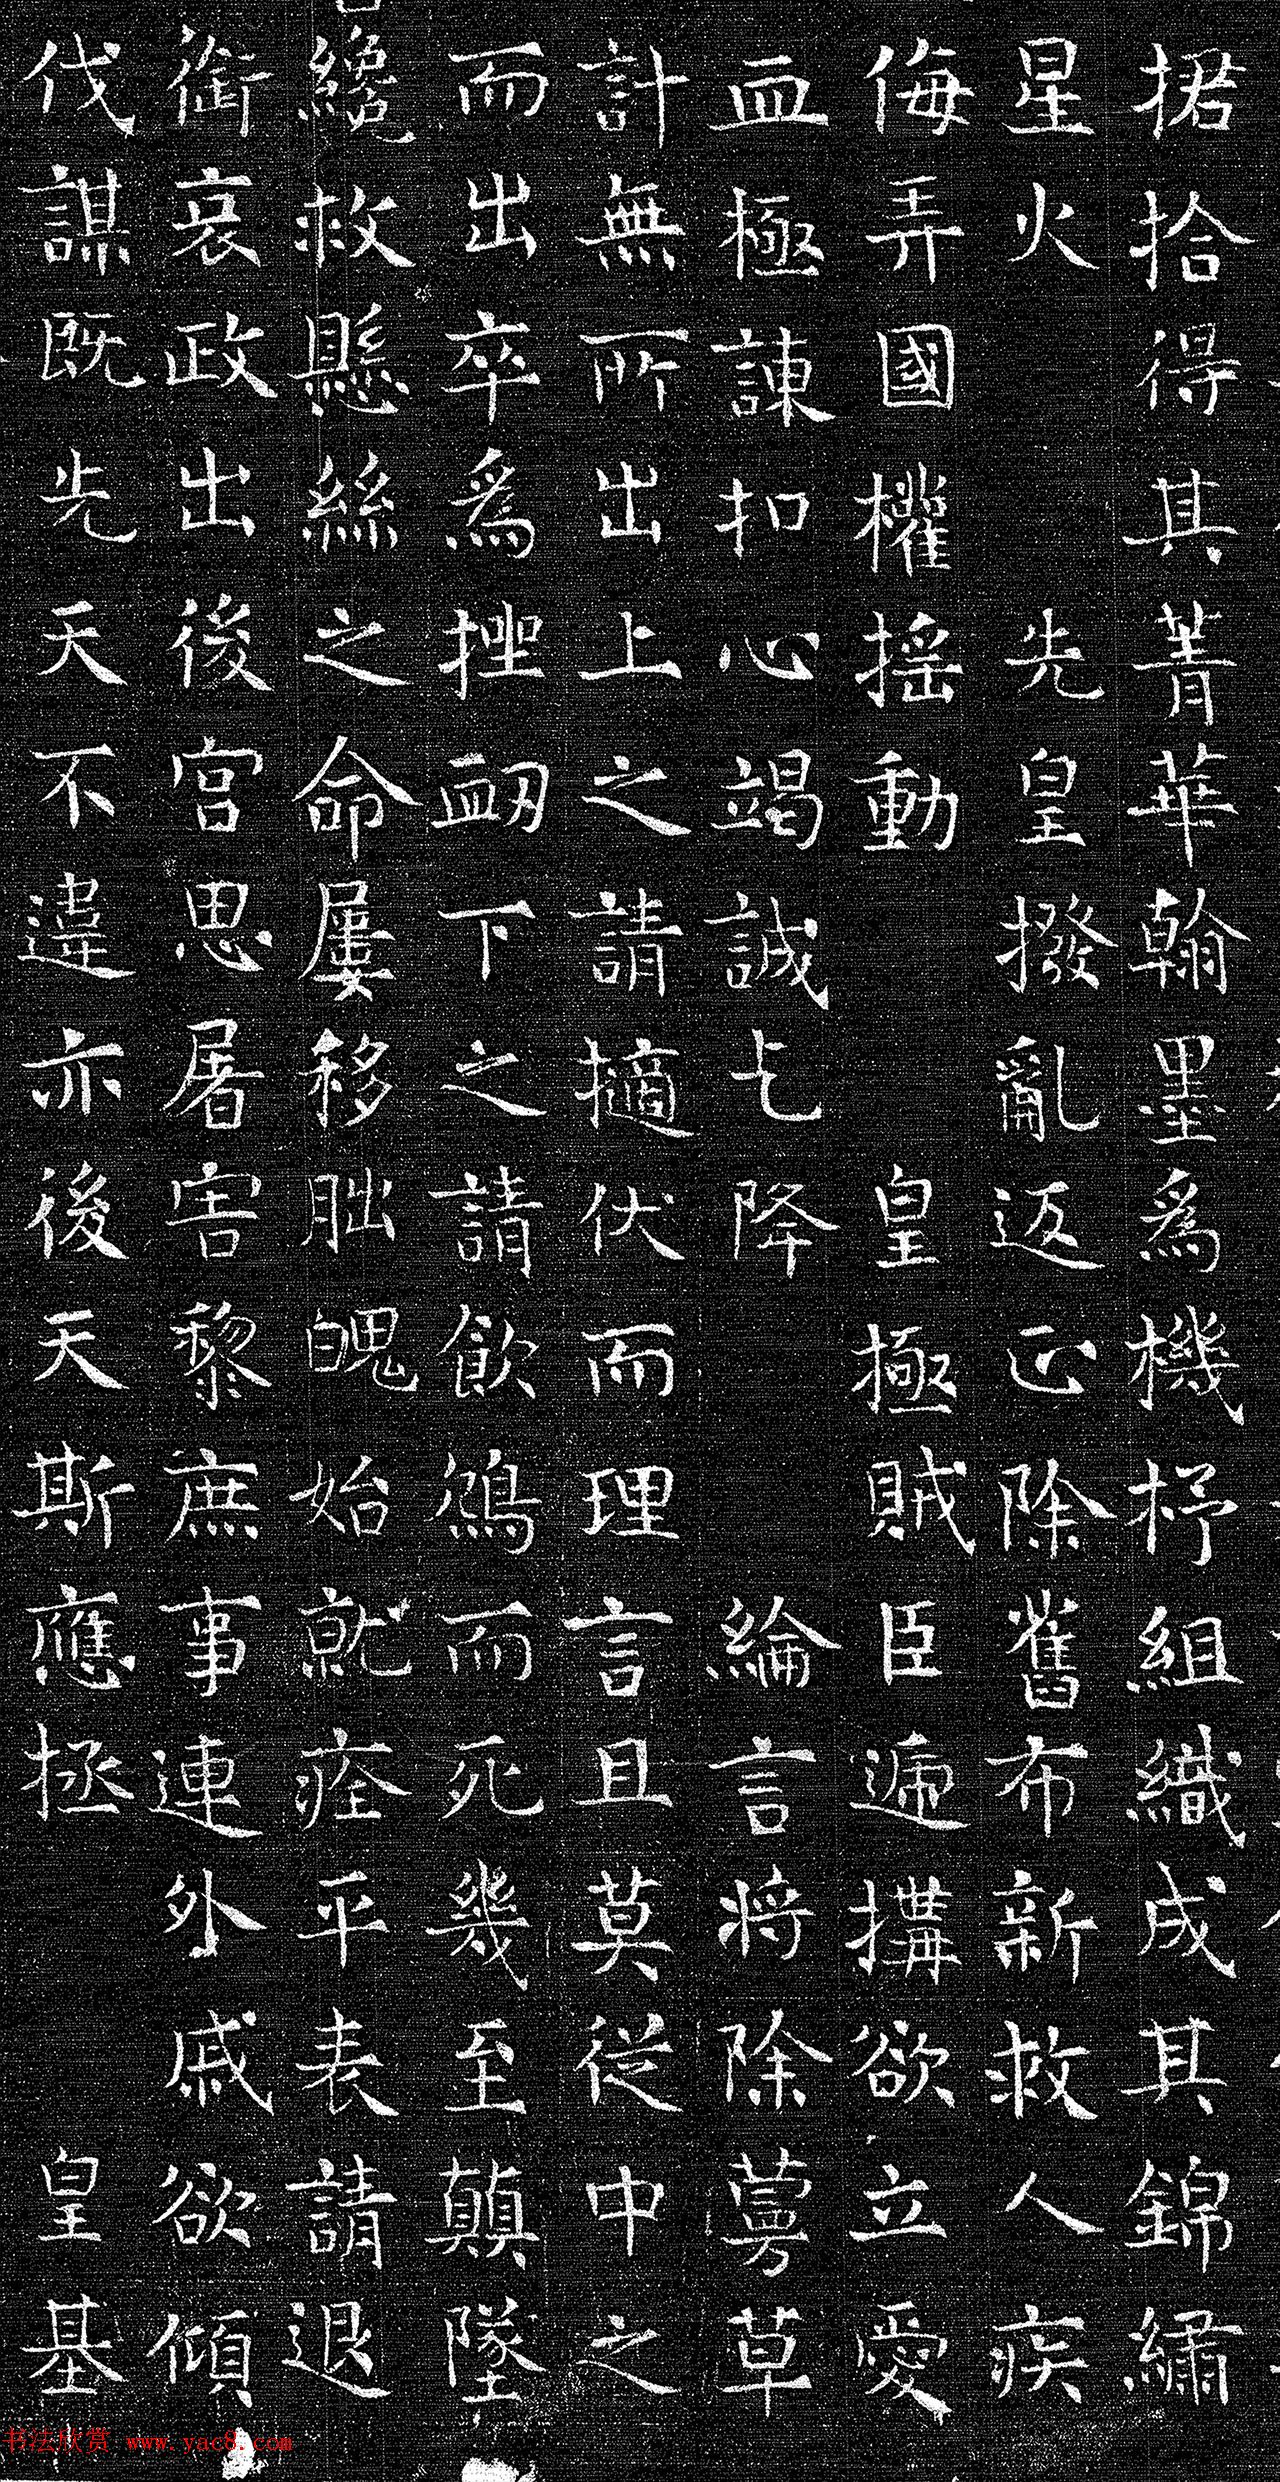 捃拾得其菁華翰墨爲機杼組織成其錦繡
星火 先皇撥亂返正除舊布新救人疾
侮弄國權搖動 皇極賊臣遞搆欲立愛
血極諫扣心竭誠乞降 綸言將除蔓草
計無所出上之請擿伏而理言且莫從中之
而出卒爲挫衂下之請飲鴆而死幾至顛墜
纔救懸絲之命屢移朏魄始就痊平表請退
銜哀政出後宮思屠害黎庶事連外戚欲傾
伐謀既先天不違亦後天斯應拯 皇基
书法欣赏 www.yac8.com